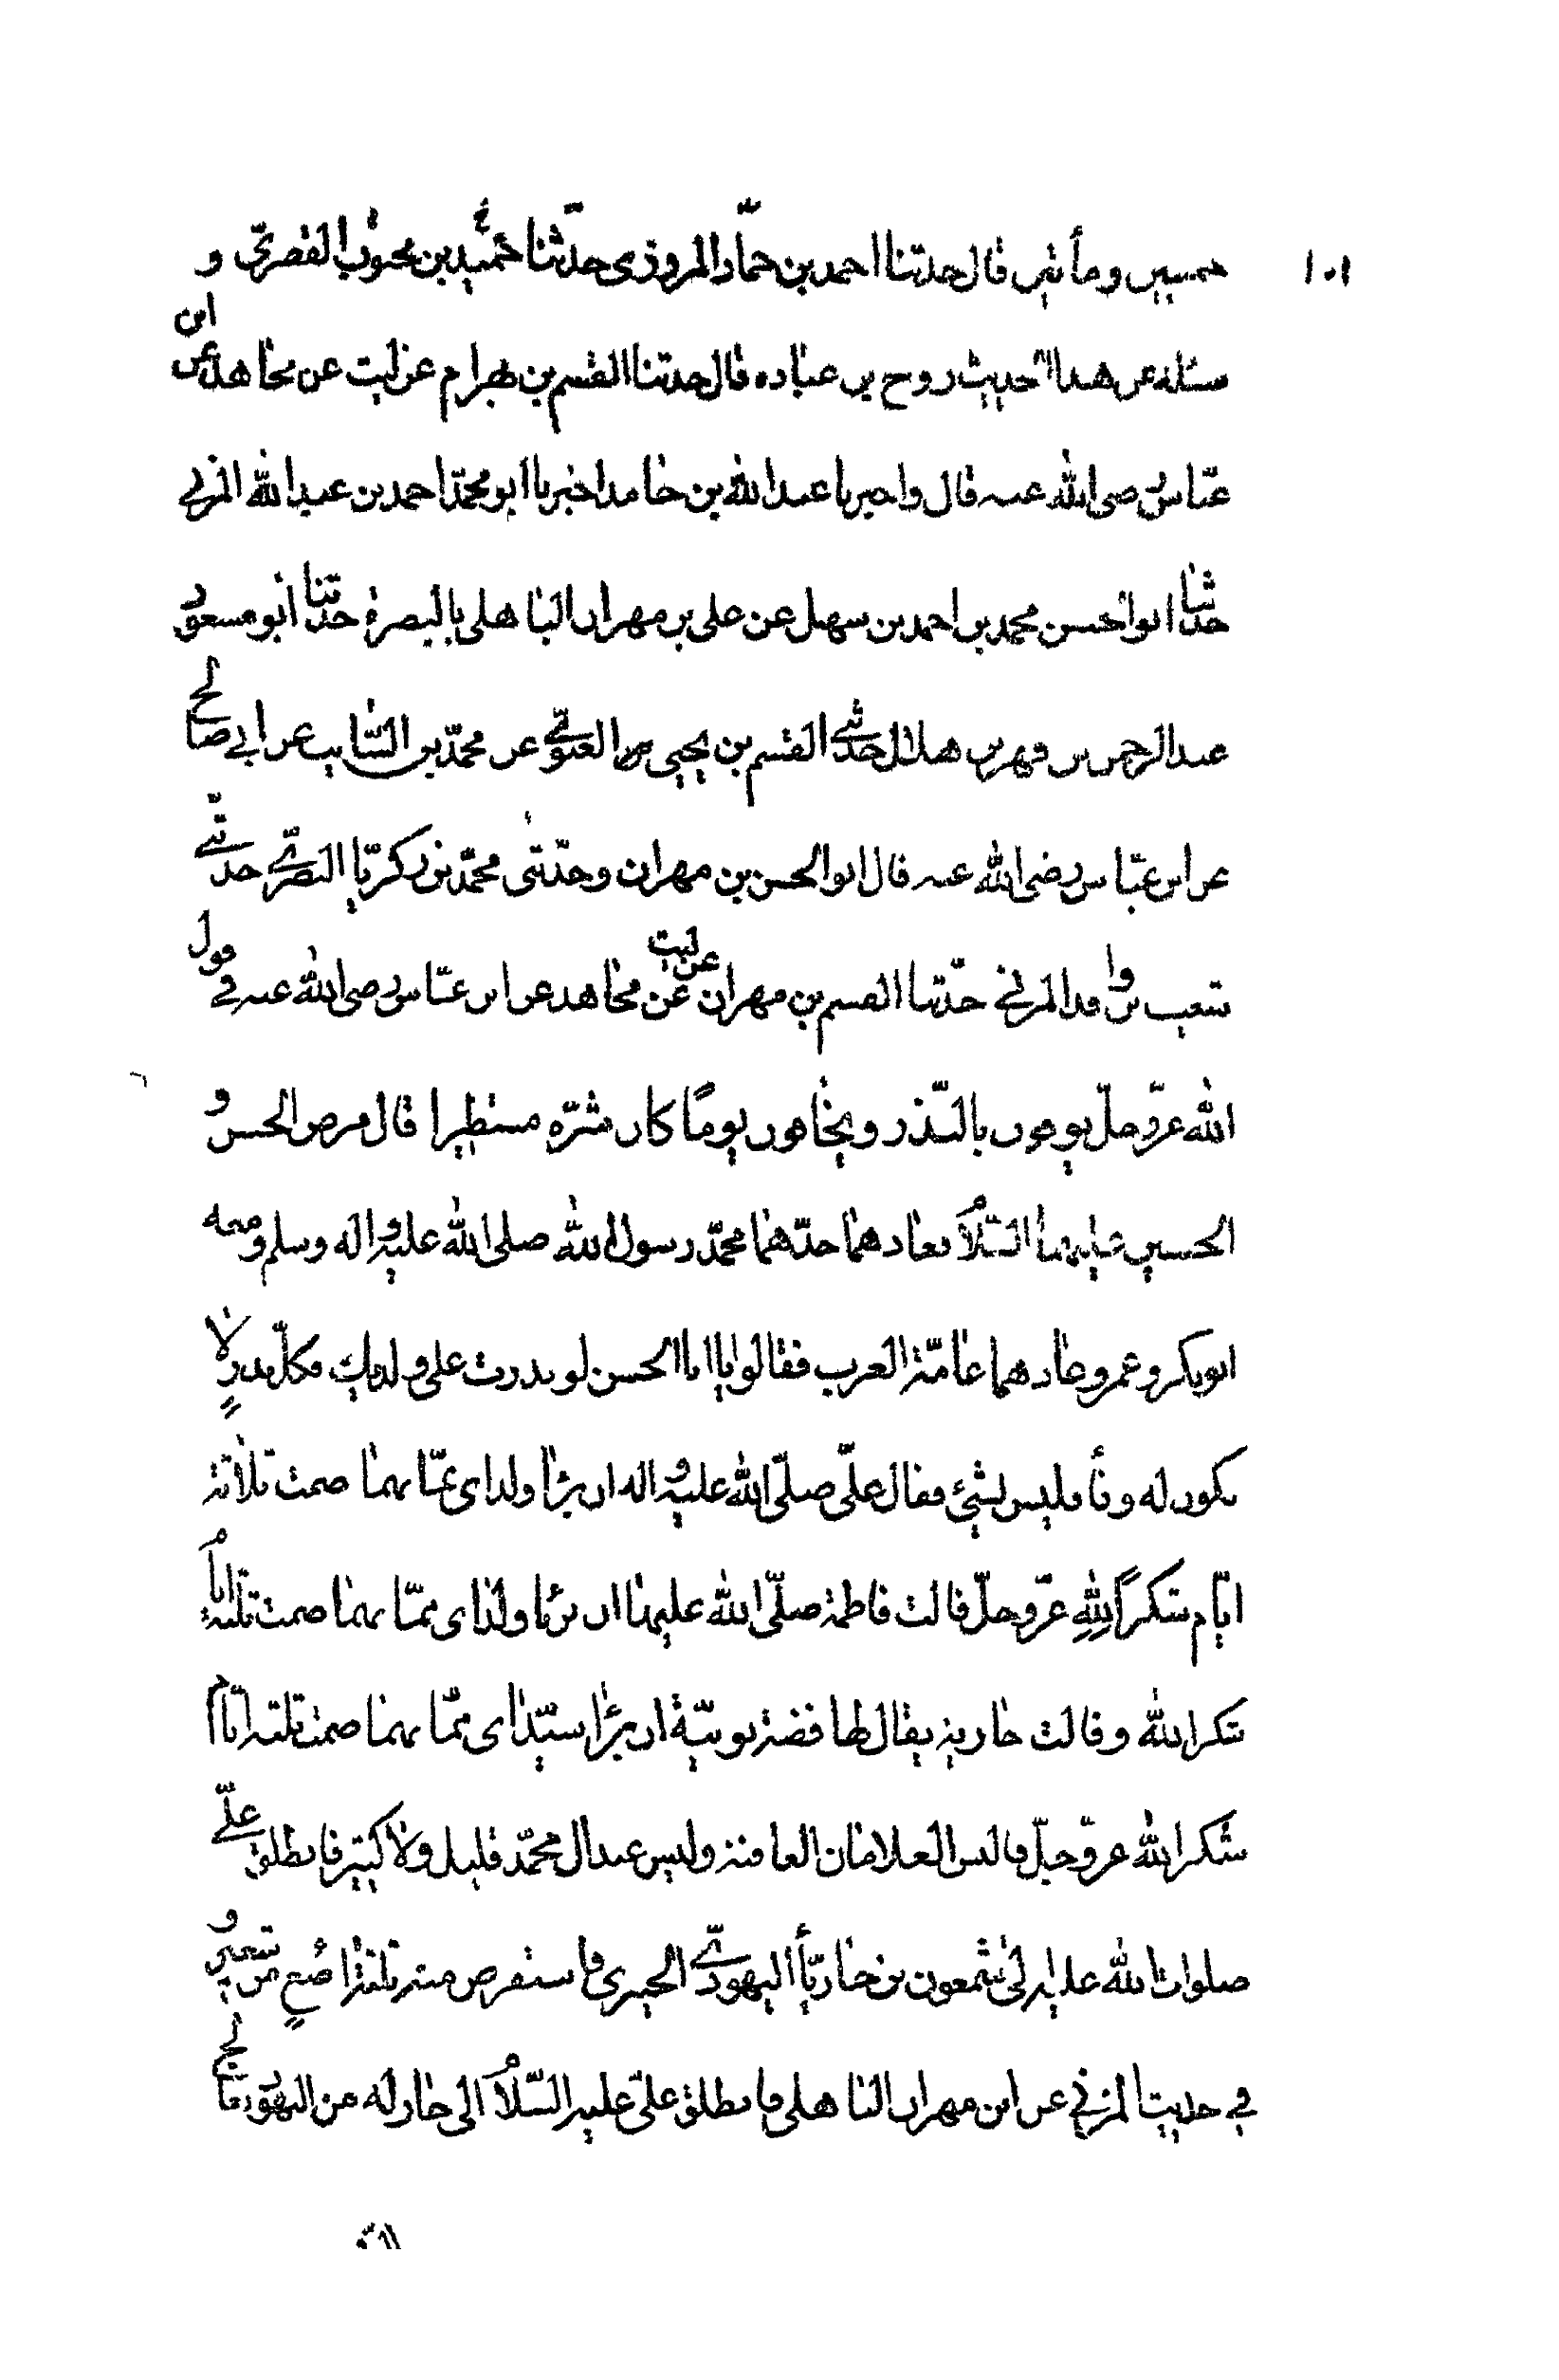 ١٠١
خمسين ومأتين قال حدثنا احمد بن حمّاد المروزى حدّثنا حميد بن محبوب القصرىّ و
مسئله عن هذا الحديث روح بن عباده قال حدثنا القسم بن بهرام عن ليث عن مجاهد عن ابن
عبّاس رضى الله عنه قال واخبرنا عبد الله بن حامد اخبرنا ابو محمّد احمد بن عبد الله المزنى
حدثنا ابو الحسن محمد بن احمد بن سهل عن على بن مهران الباهلى بالبصرة حدثنا ابو مسعود
عبد الرحمن بن فهر بن هلال حدثنى القسم بن يحيى عن محمّد بن السّايب عن ابى صالح
عن ابن عبّاس رضى الله عنه قال ابو الحسن بن مهران وحدّثنى محمّد بن زكريّا البصرىّ حدّثنى
شعيب بن واقد المزنى حدّثنا القسم بن مهران عن ليث عن مجاهد عن ابن عبّاس رضى الله عنه فى قول
الله عزّ وجلّ يوفون بالنّذر ويخافون يومًا كان شرّه مستطيرا قال مرض الحسن و
الحسين عليهما السّلام فعادهما جدّهما محمّد رسول الله صلى الله عليه واله وسلم ومعه
ابو بكر وعمر وعادهما عامّة العرب فقالوا يا ابا الحسن لو نذرت على ولديك وكلّ نذرٍ لا
يكون له وفأ فليس بشئ فقال علىّ صلّى الله عليه واله ان برأ ولداى ممّا بهما صمت ثلاثة
ايّام شكرًا للهِ عزّ وجلّ قالت فاطمة صلّى الله عليها ان برئا ولداى ممّا بهما صمت ثلثة ايام
شكرا لله وقالت جارية يقال لها فضة نوبيّة ان برأ سيّداى ممّا بهما صمت ثلثه ايّام
شكرا لله عزّ وجلّ فالبس الغلامان العافية وليس عند ال محمّد قليل ولا كثير فانطلق علىّ
صلوات الله عليه الى شمعون بن حاريّا اليهودىّ الخيبرى فاستقرض منه ثلثة اصُعٍ من شعير و
فى حديث المزنى عن ابن مهران الباهلى فانطلق علىّ عليه السّلام الى جار له من اليهود يعالج